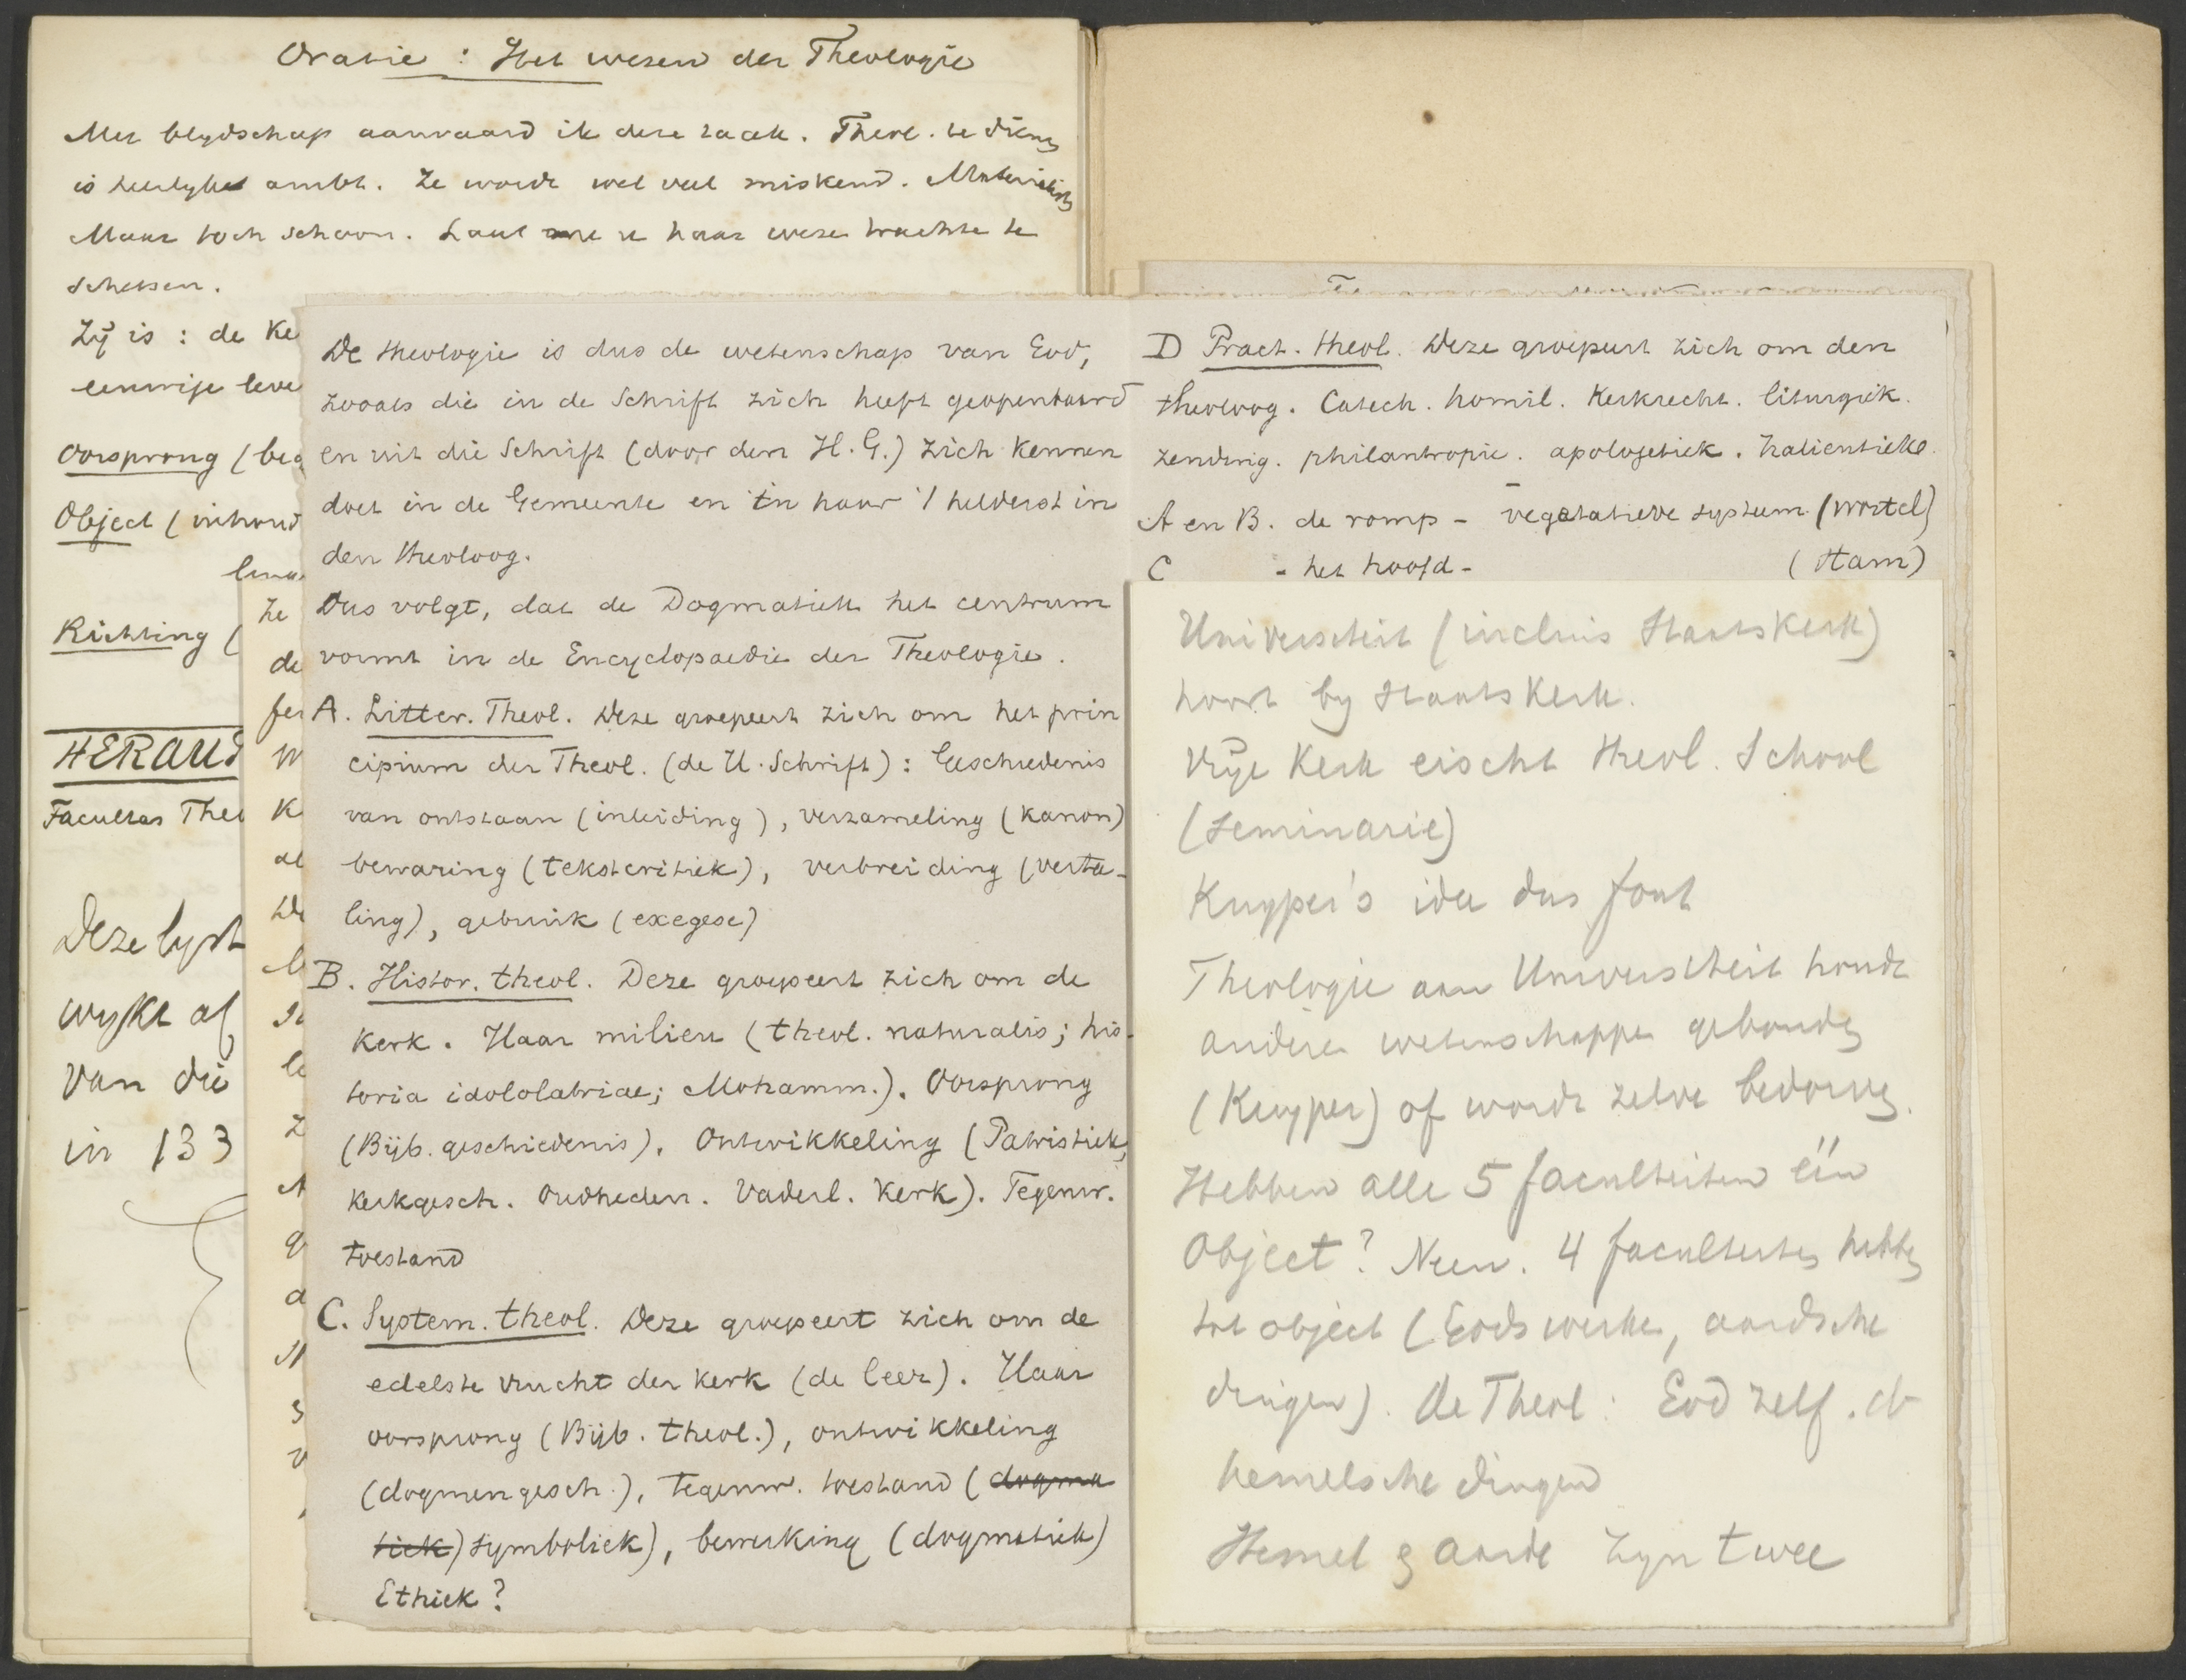 Oratie : Het wesen der Theologie
Met blydschap aanvaard ik deze taak. Theol. te
is heerlyk ambt. Ze wordt wel veel miskend.
Maar toch schoon. Laat me u haar weze trachte te
schetsen.
Zij is : de Ke
leve
Oorsprong (beg
Object (inhoud
Richting (
HERAUT
Facultas Theo
Deze lyst
wykt af
van die
in 133
Ze
de
De theologie is dus de wetenschap van God,
zooals die in de Schrift zich heeft geopenbaard
en uit die Schrift (door den H. G.) zich kennen
doet in de Gemeente en in haar 't helderst in
den theoloog.
Dus volgt, dat de Dogmatiek het centrum
vormt in de Encyclopaedie der Theologie.
A. Litter. Theol. Deze groepeert zich om het prin
cipium der Theol. (de H. Schrift) : Geschiedenis
van ontstaan (inleiding), verzameling (kanon)
bewaring (tekstcritiek), verbreiding (verta-
ling), gebruik (exegese)
B. Histor. theol. Deze groepeert zich om de
Kerk. Haar milieu (theol. naturalis; his-
toria idololatriae; Mohamm.). Oorsprong
(Bijb. geschiedenis). Ontwikkeling (Patristiek,
kerkgesch. Oudheden. Vaderl. Kerk). Tegenw.
toestand
C. System. theol. Deze groepeert zich om de
edelste vrucht der Kerk (de leer). Haar
oorsprong (Bijb. theol.), ontwikkeling
(dogmengesch.), tegenw. toestand (dogma
tiek) symboliek), bewerking (dogmatiek)
Ethiek?
D Pract. theol. Deze groepeert zich om den
theoloog. Catech. homil. Kerkrecht. liturgiek.
zending. philantropie. apologetiek. halieutieke.
A en B. de romp - vegetatieve systeem (wortel)
C - het hoofd - (stam)
Universiteit (incluis Staatskerk)
hoort by Staatskerk.
Vrije Kerk eischt theol. School
(Seminarie)
Kuyper's idee dus fout
Theologie aan Universiteit houdt
andere wetenschappen gebonden
(Kuyper) of wordt zelve bedorven.
Hebben alle 5 faculteiten één
Object? Neen. 4 faculteiten hebben
tot object (Gods werken, aardsche
dingen). De Theol : God zelf. de
hemelsche dingen
Hemel en aarde zyn twee